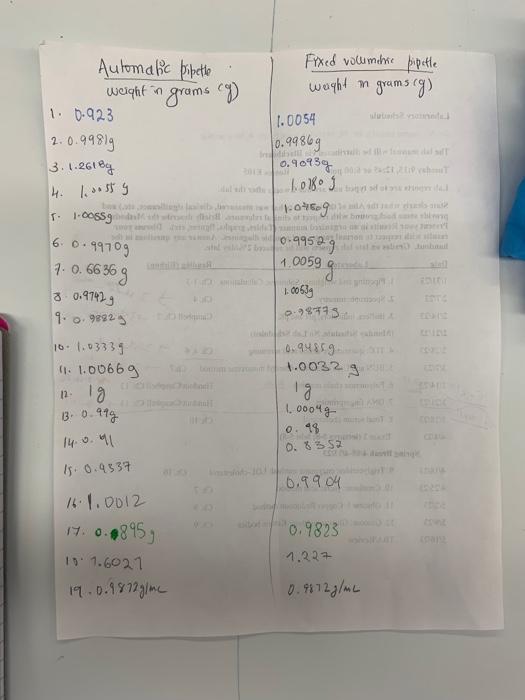 Automatic pipette
weight in grams (g)
Fixed volumetric pipette
weight in grams (g)
1. 0.923
1.0054
2. 0.9981g
0.9986g
3. 1.2618g
0.9093g
4. 1.0055 g
1.0180 g
5. 1.0055g
6. 0.9970g
0.9952g
7. 0.6636g
1.0059 g
8 0.9742g
1.0053g
9. 0.9882g
0.9877g
10. 1.0333g
0.9485g
11. 1.0066g
1.0032 g
12. 1g
1g
13. 0.99g
1.0004g
14. 0.91
0.98
0.8352
15. 0.9537
0.9904
16. 1.0012
17. 0.895g
0.9823
18. 1.6027
1.227
19. 0.9872g/mL
0.9872g/mL